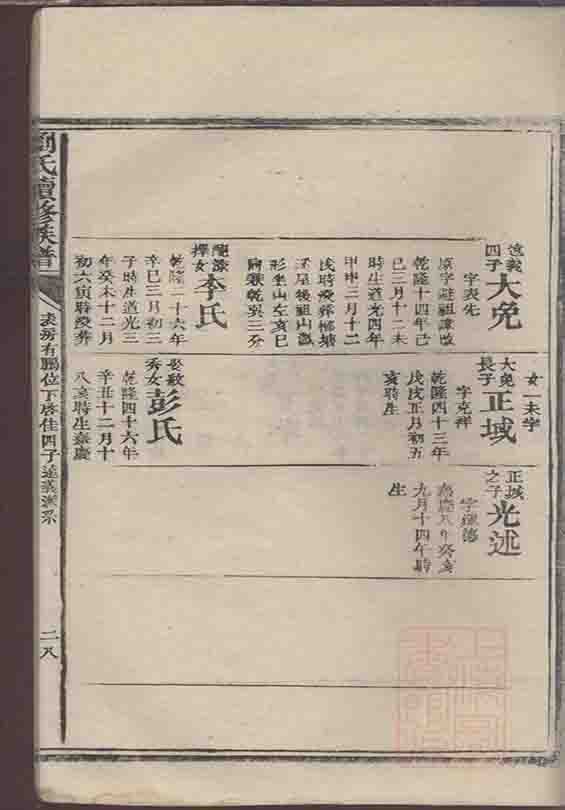 逵義
四子
大免
字表先
原字避祖諱改
乾隆十四年己
巳三月十二未
時生道光四年
甲申三月十二
戌時歿葬
屋後祖山
形坐山左亥巳
兼乾巽三分
李氏
乾隆二十六年
辛巳三月初三
子時生道光三
年癸未十二月
初六寅時歿葬
女一未字
大免
長子
正域
字克祥
乾隆四十三年
戊戌正月初五
亥時生
娶敬
秀女
彭氏
乾隆四十六年
辛丑十二月十
八亥時生嘉慶
正域
之子
光述
嘉慶八年癸亥
九月十四午時
生
劉氏續修族譜
房有鵬位下啓佳四子逵義派系
二八